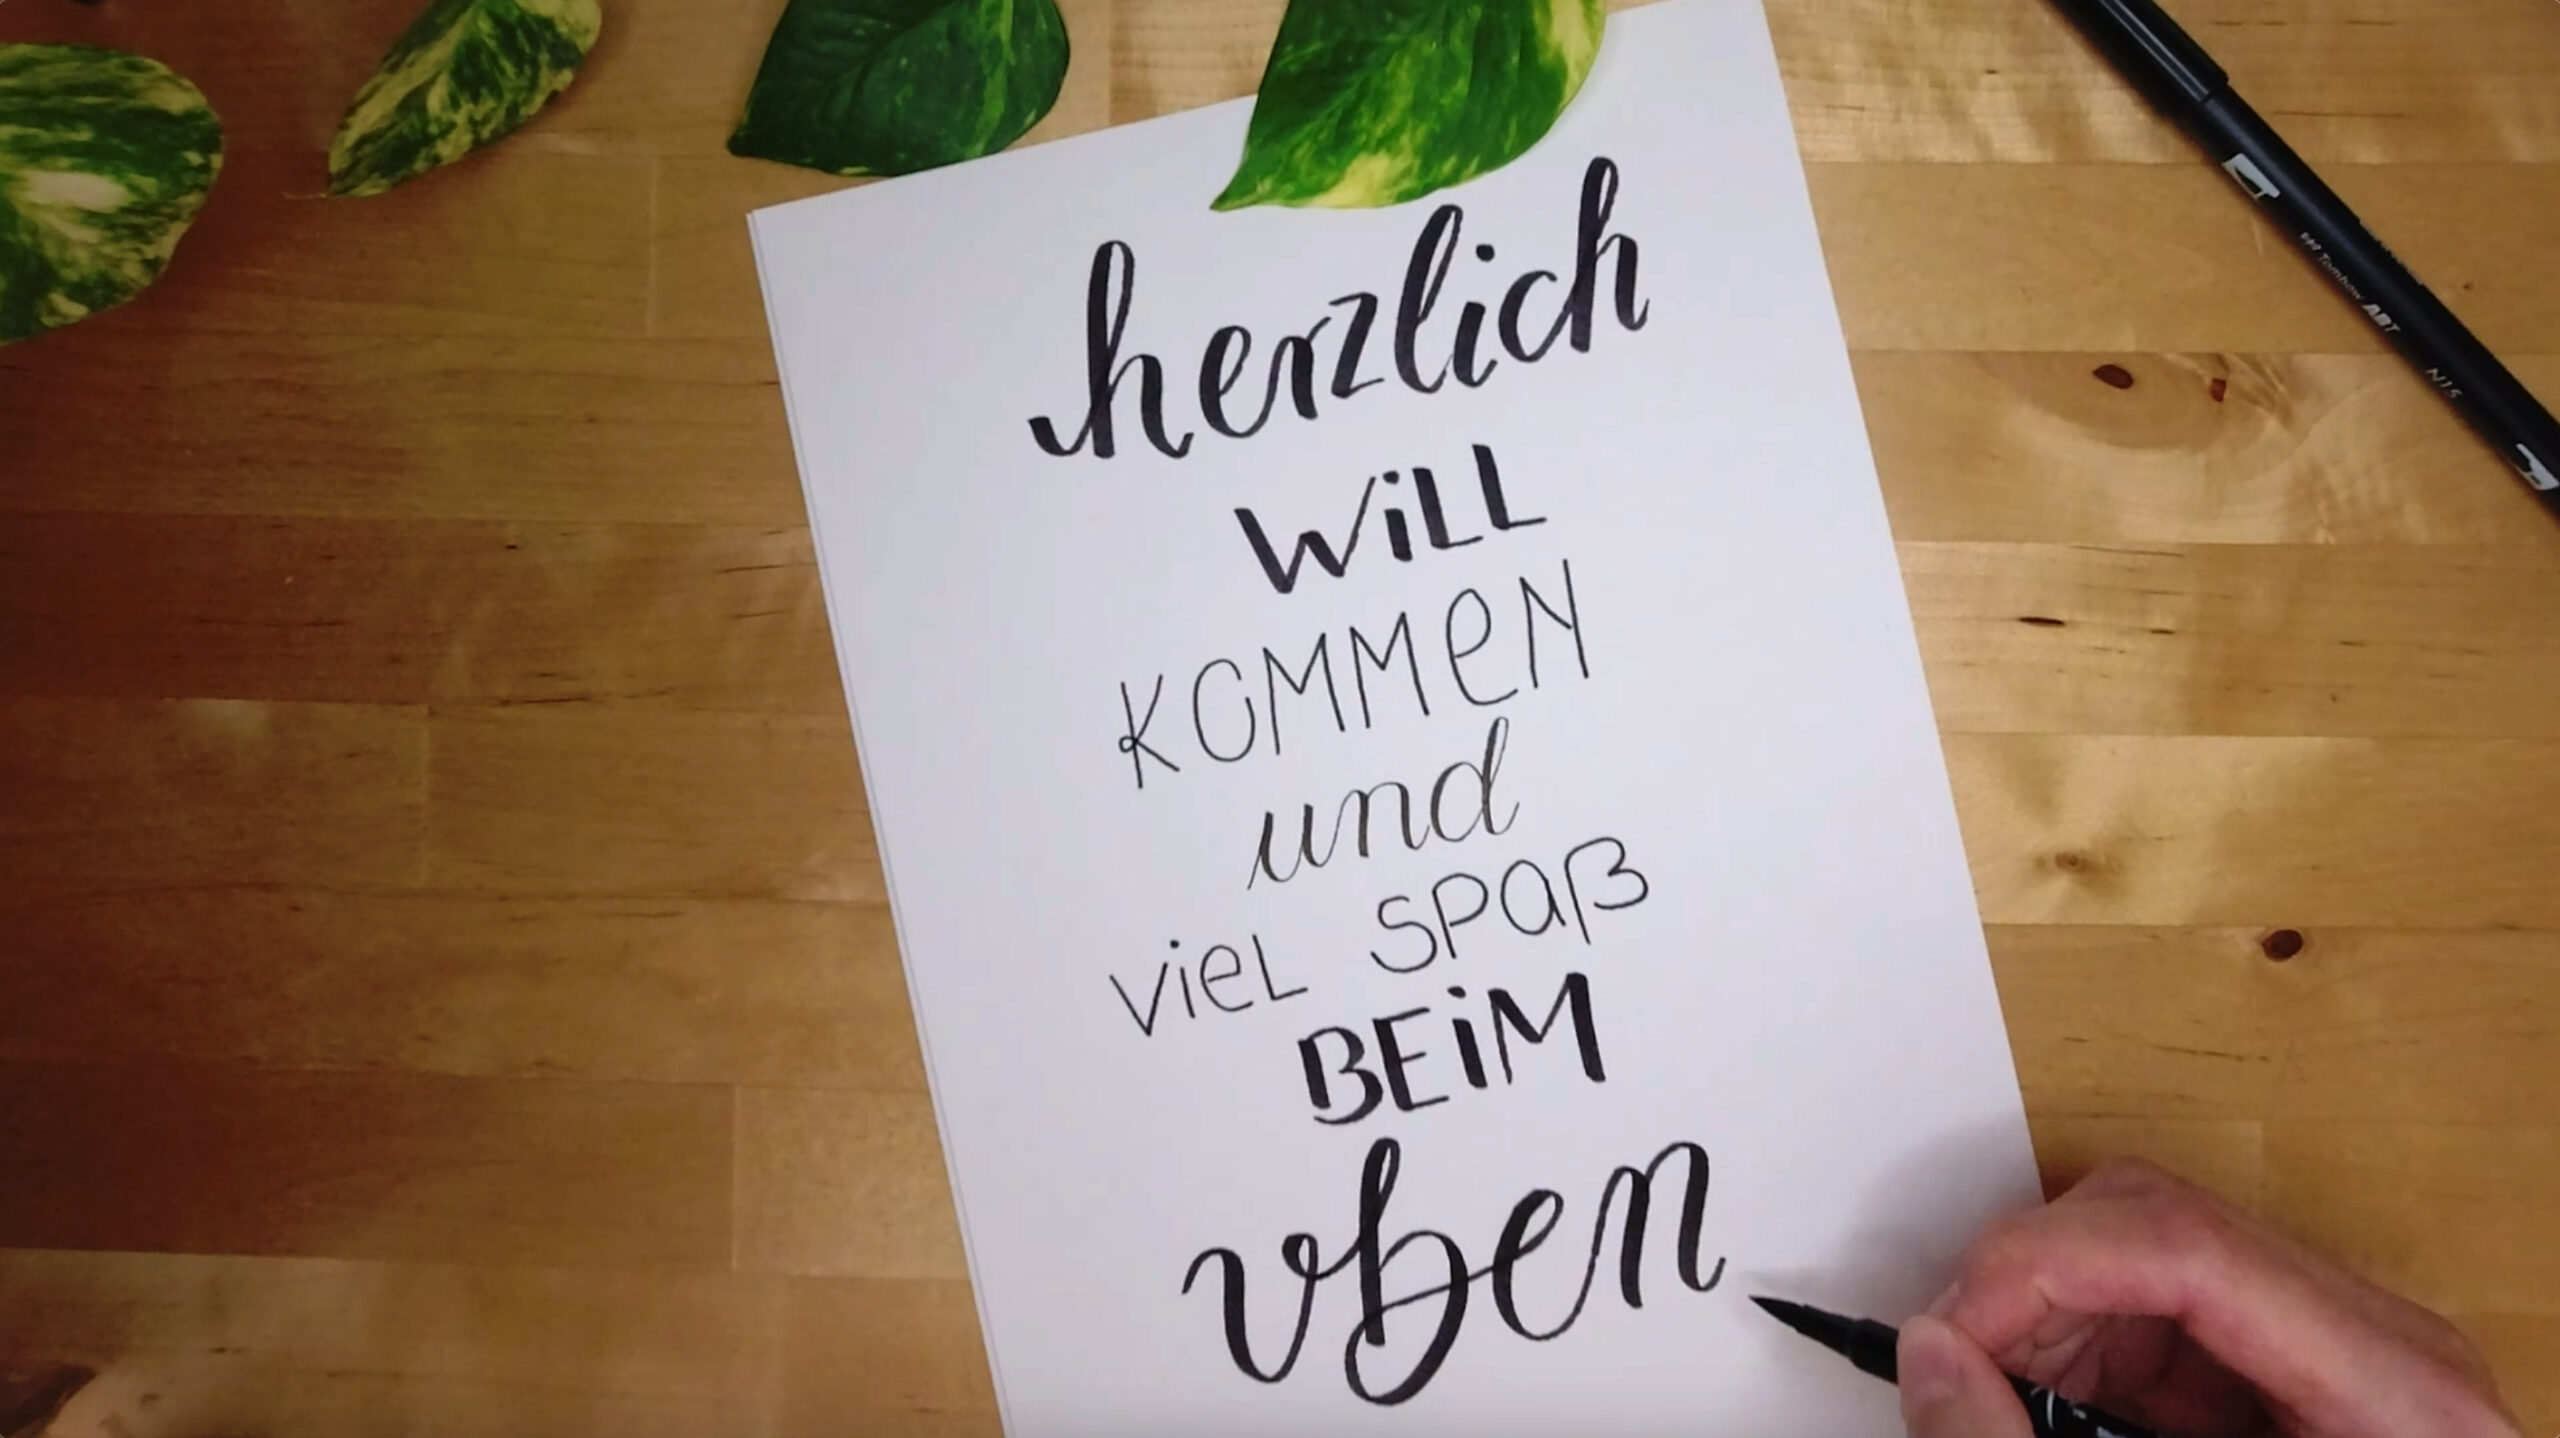 herzlich
WiLL
KOMMeN
und
VieL SPaß
BEiM
vben
Tombow ABT
N15